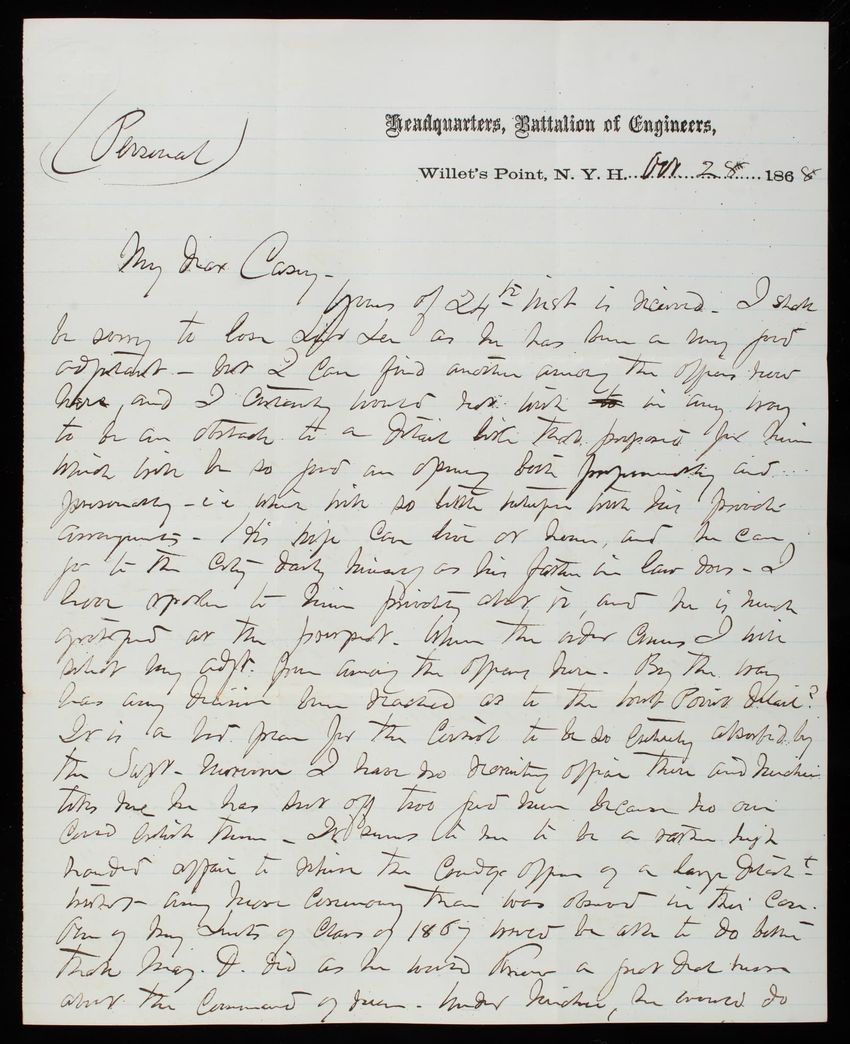 (Personal)
Headquarters, Battalion of Engineers,
Willet's Point, N. Y. H. Oct 28th 1868
My Dear Casey-
Yours of 24th inst is received - I shall
be sorry to lose Lieut Lee as he has been a very good
adjutant - but I can find another among the officers now
here, and I certainly would not wish to in any way
to be an obstacle to a detail like that proposed for him
which will be so good an opening both professionally and
personally - i.e. which will so little interfere with his private
arrangements - His wife can live at home, and he can
go to the City daily himself as his father in law does - I
have spoken to him privately about it, and he is much
gratified at the prospect. When the order comes I will
select my adjt. from among the officers here - By the way
has any decision been reached as to the West Point detail?
It is a bad plan for the Control to be so entirely absorbed by
the Supt - Moreover I have no recruiting officer there and Michie
tells me he has sent off two good men because no one
could enlist them - It seems to me to be a rather high
handed affair to relieve the Comdg officer of a large Detacht
without any more ceremony than was observed in this case.
One of my Lieuts of Class of 1867 would be able to do better
than Maj. D. did as he would know a great deal more
about the Command of men - Under Michie, he would do